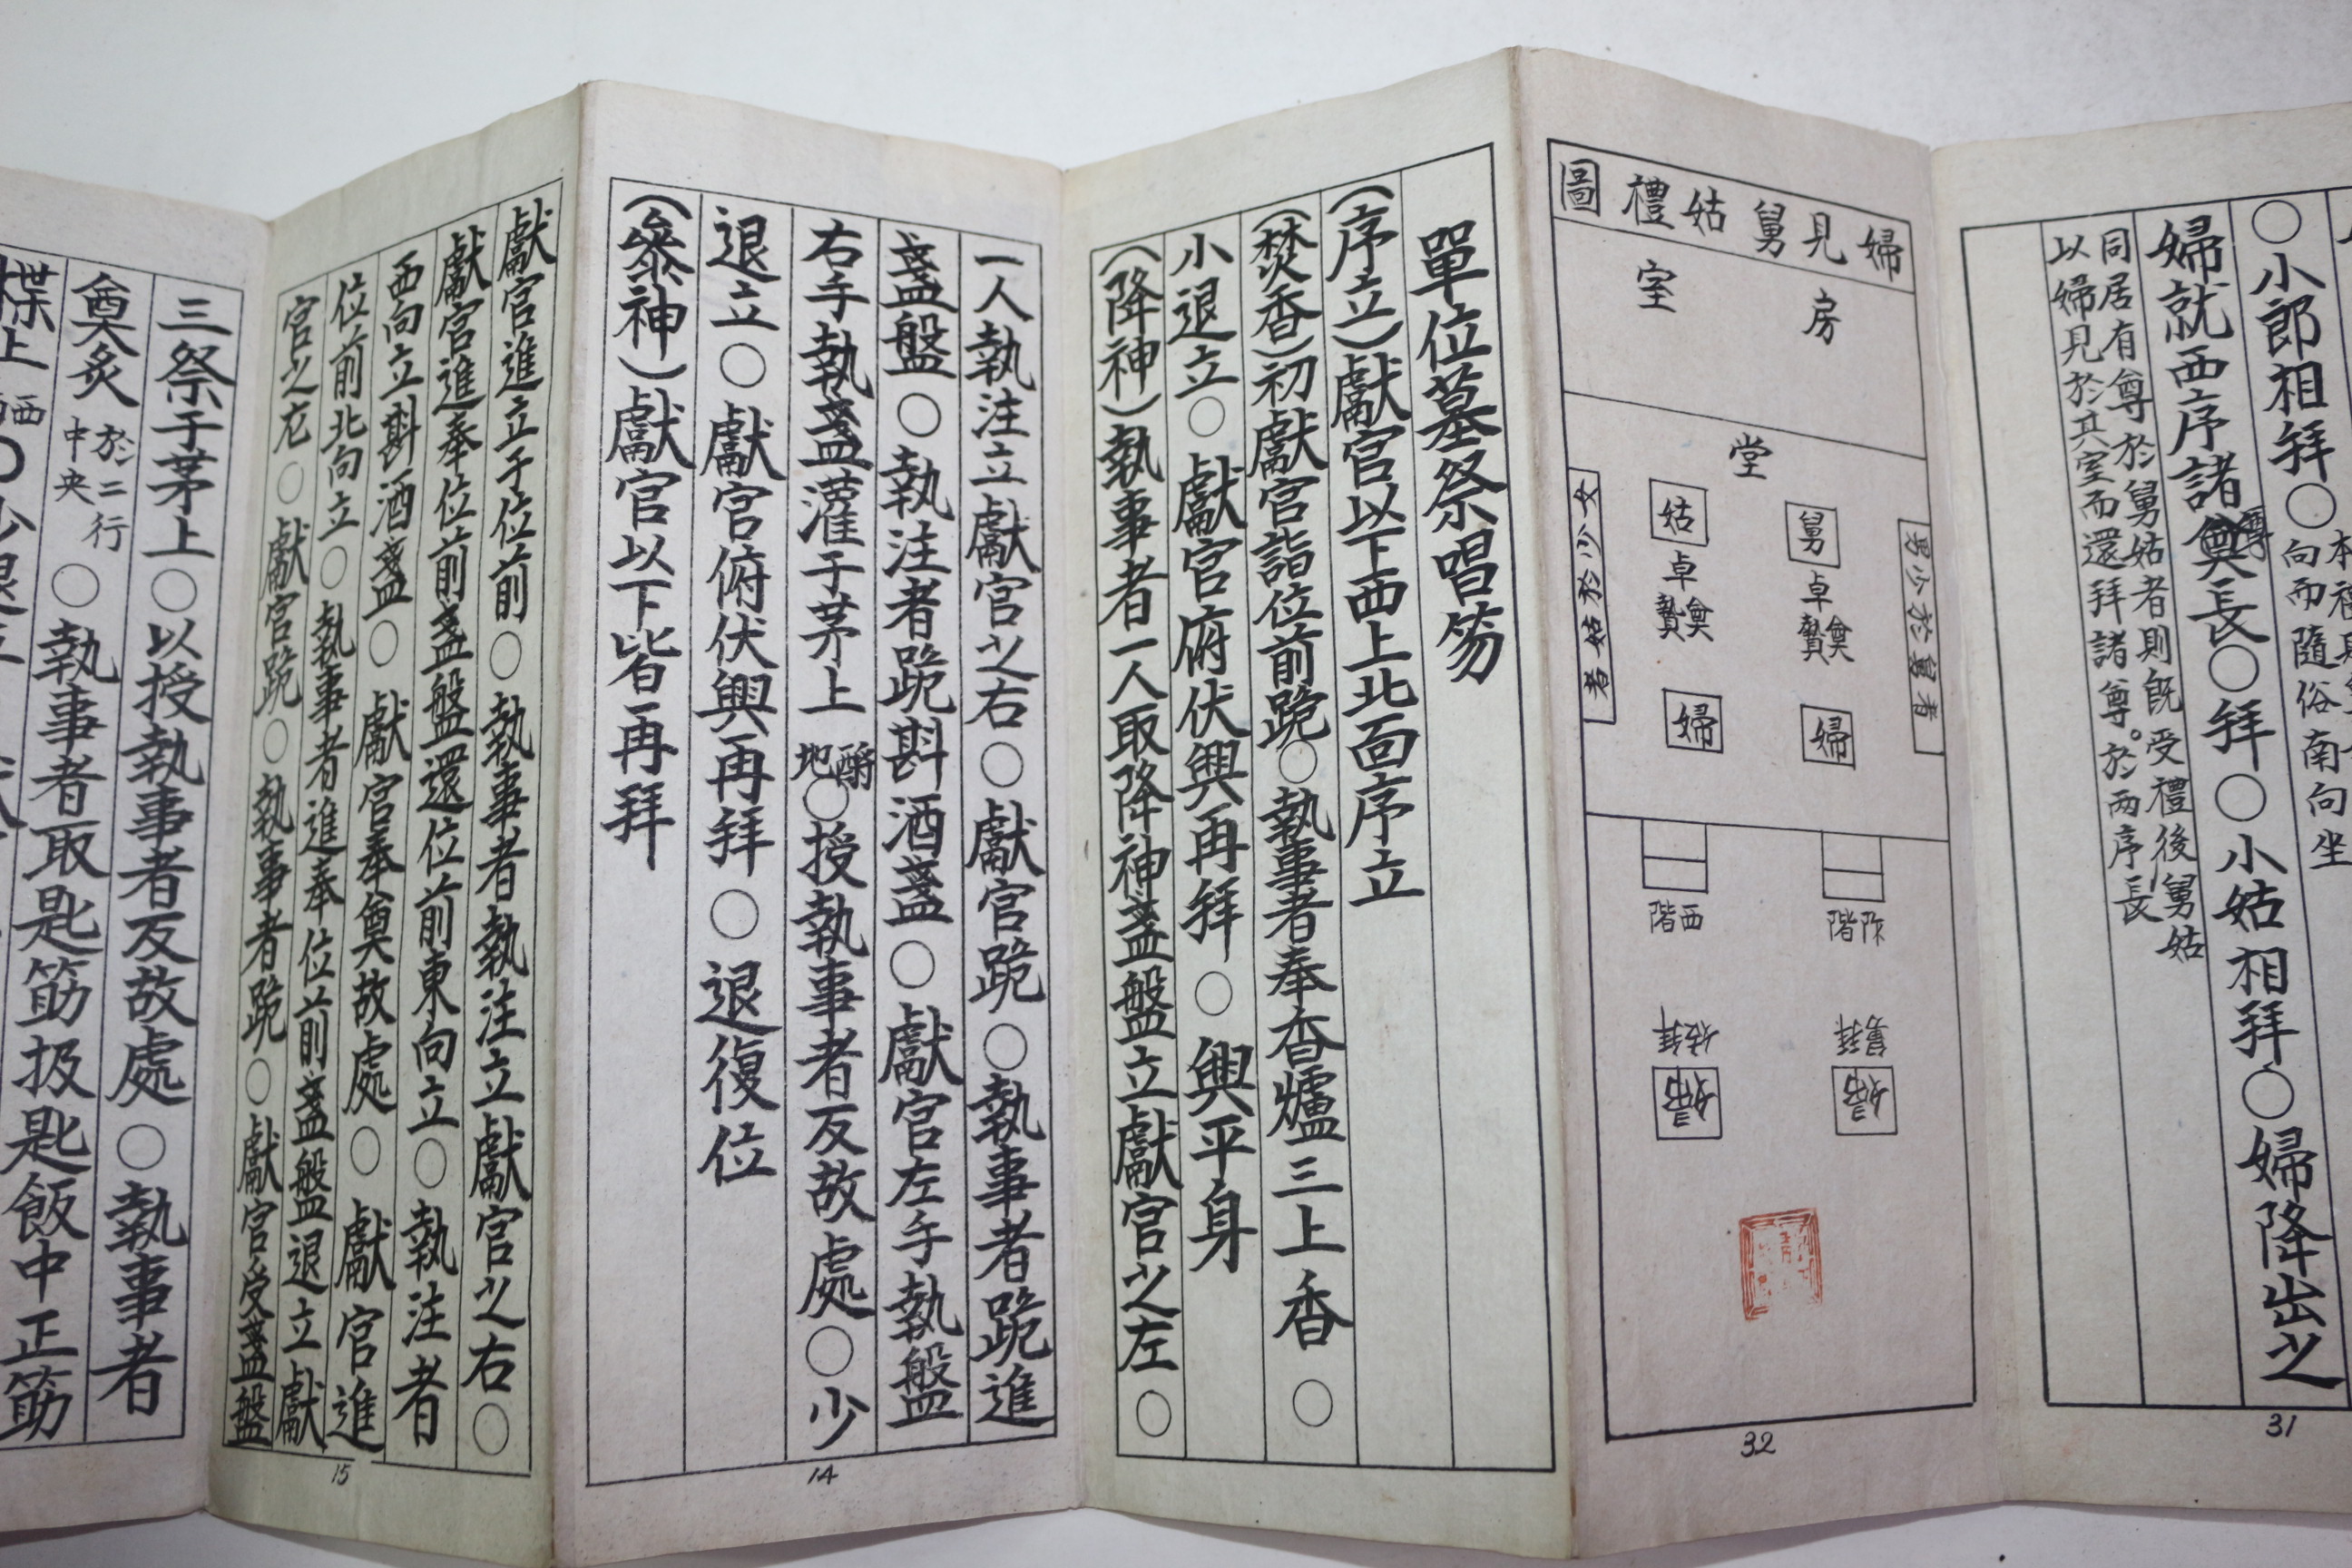 ○小郎相拜○
向而隨俗南向坐
婦就西序諸尊長○拜○小姑相拜○婦降出之
同居有尊於舅姑者則既受禮後舅姑
以婦見於其室而還拜諸尊。於兩序長
31
婦見舅姑禮圖
房
室
堂
舅
姑
卓
卓
奠贄
奠贄
婦
婦
男少於舅者
女少於姑者
阼階
西階
舅拜
姑拜
婦
婦
32
單位墓祭唱笏
(序立)獻官以下西上北面序立
(焚香)初獻官詣位前跪○執事者奉香爐三上香○
小退立○獻官俯伏興再拜○興平身
(降神)執事者一人取降神盞盤立獻官之左○
一人執注立獻官之右○獻官跪○執事者跪進
盞盤○執注者跪斟酒盞○獻官左手執盤
右手執盞灌于茅上酹地○授執事者反故處○少
退立○獻官俯伏興再拜○退復位
(參神)獻官以下皆再拜
14
獻官進立于位前○執事者執注立獻官之右○
獻官進奉位前盞盤還位前東向立○執注者
西向立斟酒盞○獻官奉奠故處○獻官進
位前北向立○執事者進奉位前盞盤退立獻
官之左○獻官跪○執事者跪○獻官受盞盤
15
三祭于茅上○以授執事者反故處○執事者
奠炙於二行中央○執事者取匙筯扱匙飯中正筯
楪上